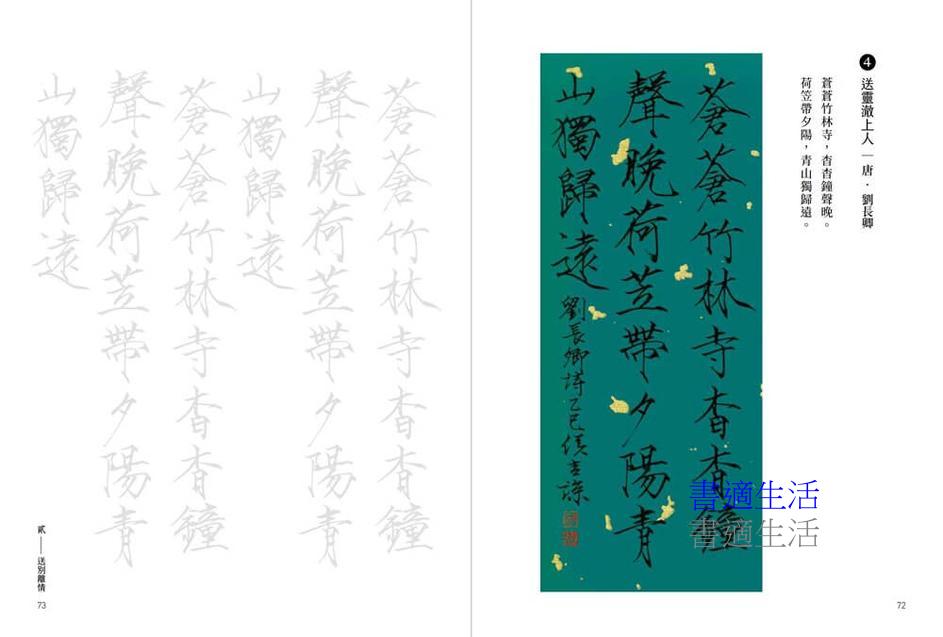 4 送靈澈上人｜唐．劉長卿
蒼蒼竹林寺，杳杳鐘聲晚。
荷笠帶夕陽，青山獨歸遠。
蒼蒼竹林寺杳杳鐘
聲晚荷笠帶夕陽青
山獨歸遠 劉長卿詩乙巳侯吉諒
書適生活
書適生活
72
蒼蒼竹林寺杳杳鐘
聲晚荷笠帶夕陽青
山獨歸遠
蒼蒼竹林寺杳杳鐘
聲晚荷笠帶夕陽青
山獨歸遠
貳——送別離情
73